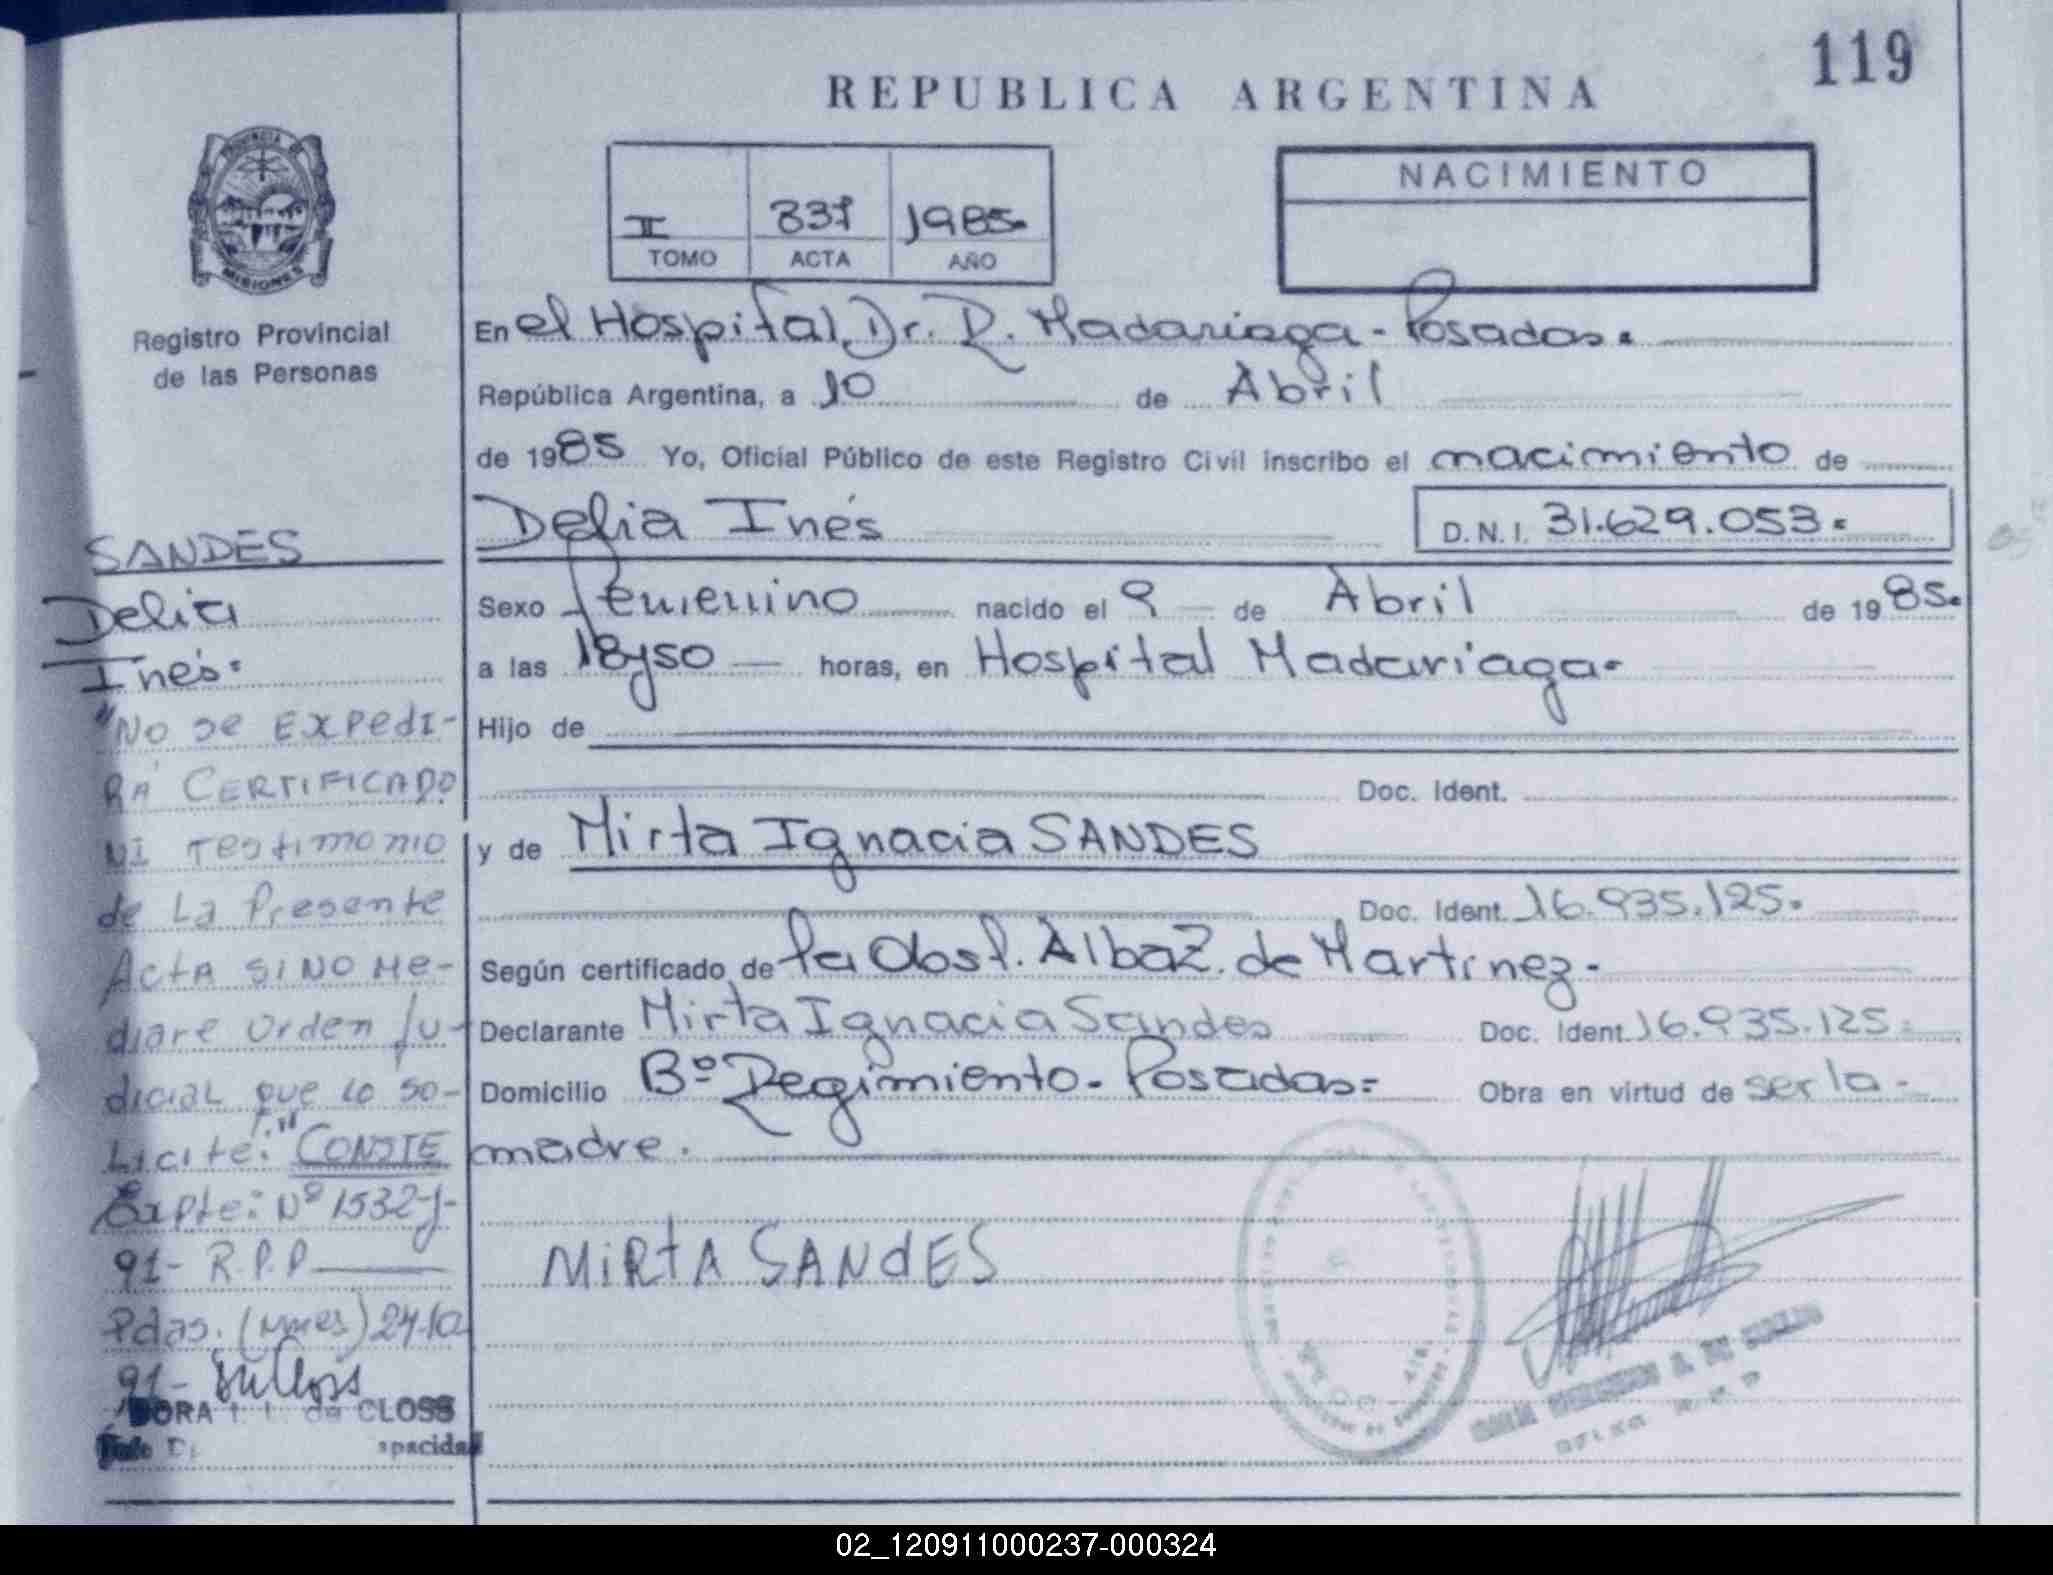 119
REPUBLICA ARGENTINA
PROVINCIA
MISIONES
Registro Provincial
de las Personas
II 337 1985
TOMO ACTA AÑO
NACIMIENTO
En el Hospital Dr. R. Madariaga - Posadas.
República Argentina, a 10 de Abril
de 1985 Yo, Oficial Público de este Registro Civil inscribo el nacimiento de
Delia Inés D.N.I. 31.629.053.
Sexo femenino nacido el 9 de Abril de 1985.
a las 18y50 horas, en Hospital Madariaga.
Hijo de
Doc. Ident.
y de Mirta Ignacia SANDES
Doc. Ident. 16.935.125.
Según certificado de la Obst. Alba Z. de Martinez.
Declarante Mirta Ignacia Sandes Doc. Ident. 16.935.125.
Domicilio Bº Regimiento - Posadas= Obra en virtud de ser la
madre.
MIRTA SANDES
SANDES
Delia
Inés.
"No se EXPEDI-
RÁ CERTIFICADO
NI TESTIMONIO
de La Presente
ACTA SI NO ME-
diare orden Ju-
dicial que lo so-
Licite." CONSTE
Expte: Nº 1532-J-
91- R.P.P
Pdas. (Mnes) 24-10
91-
DORA de CLOSS
02_120911000237-000324